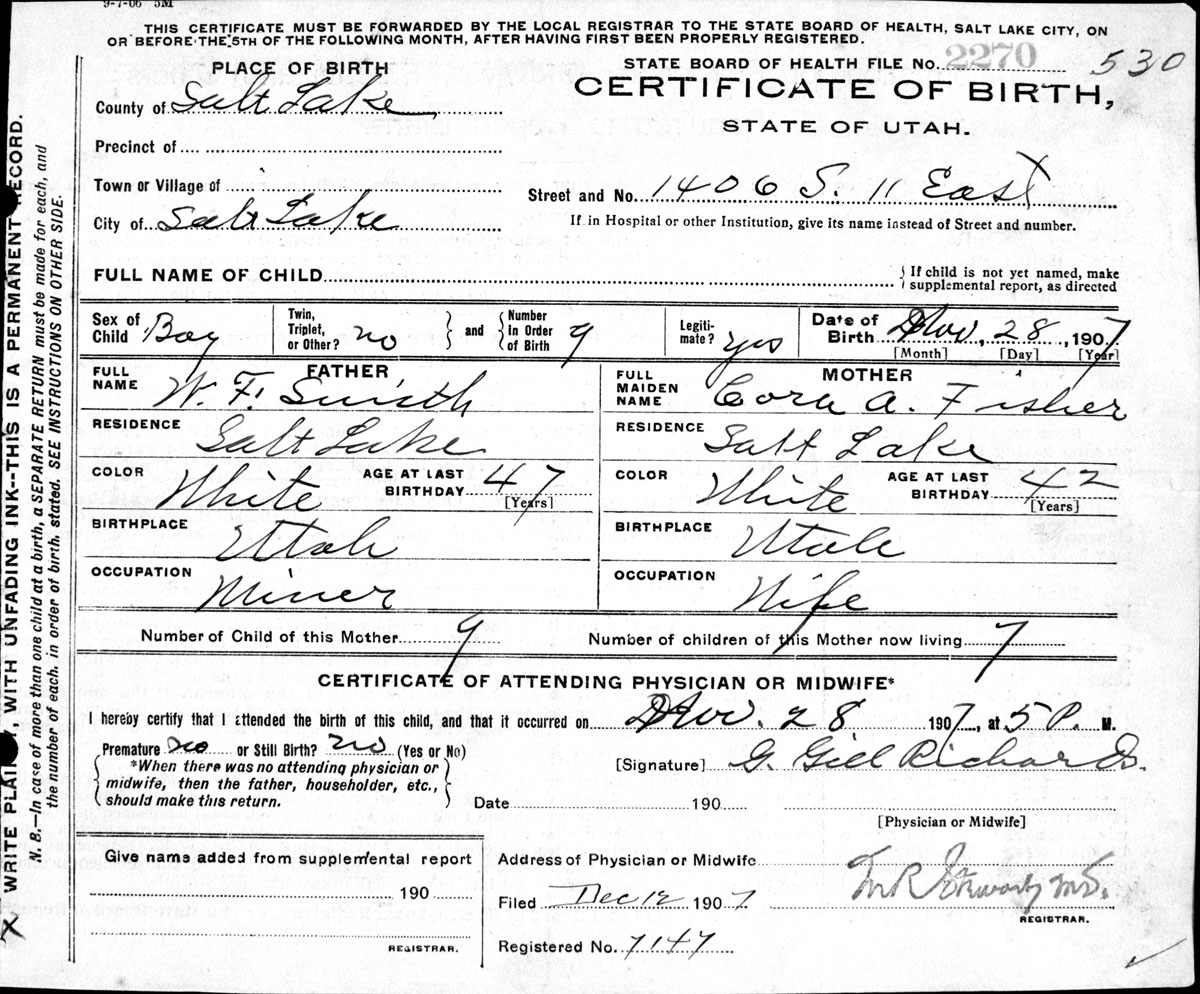 9-7-06 5M
THIS CERTIFICATE MUST BE FORWARDED BY THE LOCAL REGISTRAR TO THE STATE BOARD OF HEALTH, SALT LAKE CITY, ON
OR BEFORE THE 5TH OF THE FOLLOWING MONTH, AFTER HAVING FIRST BEEN PROPERLY REGISTERED.
PLACE OF BIRTH
STATE BOARD OF HEALTH FILE NO. 2270 530
County of Salt Lake
CERTIFICATE OF BIRTH,
STATE OF UTAH.
Precinct of
Town or Village of
Street and No. 1406 S. 11 East
City of Salt Lake
If in Hospital or other Institution, give its name instead of Street and number.
FULL NAME OF CHILD
If child is not yet named, make
supplemental report, as directed
Sex of Child Boy
Twin, Triplet, or Other? no
and Number In Order of Birth 9
Legitimate? yes
Date of Birth Nov. 28, 1907
[Month] [Day] [Year]
FATHER
FULL NAME W. F. Smith
RESIDENCE Salt Lake
COLOR White AGE AT LAST BIRTHDAY 47
[Years]
BIRTHPLACE Utah
OCCUPATION Miner
MOTHER
FULL MAIDEN NAME Cora A. Fisher
RESIDENCE Salt Lake
COLOR White AGE AT LAST BIRTHDAY 42
[Years]
BIRTHPLACE Utah
OCCUPATION Wife
Number of Child of this Mother 9 Number of children of this Mother now living 7
CERTIFICATE OF ATTENDING PHYSICIAN OR MIDWIFE*
I hereby certify that I attended the birth of this child, and that it occurred on Nov. 28 1907, at 5 P. M.
Premature no or Still Birth? no (Yes or No)
*When there was no attending physician or
midwife, then the father, householder, etc.,
should make this return.
[Signature] G. Gill Richards.
Date 190
[Physician or Midwife]
Give name added from supplemental report
190
REGISTRAR.
Address of Physician or Midwife
Filed Dec 12 1907
M.D.
REGISTRAR.
Registered No. 7147
WRITE PLAINLY, WITH UNFADING INK--THIS IS A PERMANENT RECORD.
N. B.—In case of more than one child at a birth, a SEPARATE RETURN must be made for each, and
the number of each, in order of birth, stated. SEE INSTRUCTIONS ON OTHER SIDE.